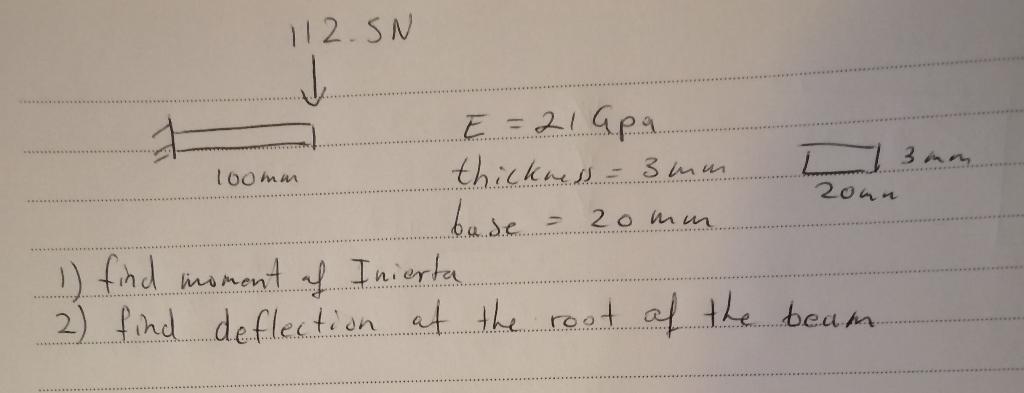 112.5N
E = 21 Gpa
100mm
thickness = 3 mm
3 mm
20mm
base = 20 mm
1) find moment of Inierta
2) find deflection at the root of the beam